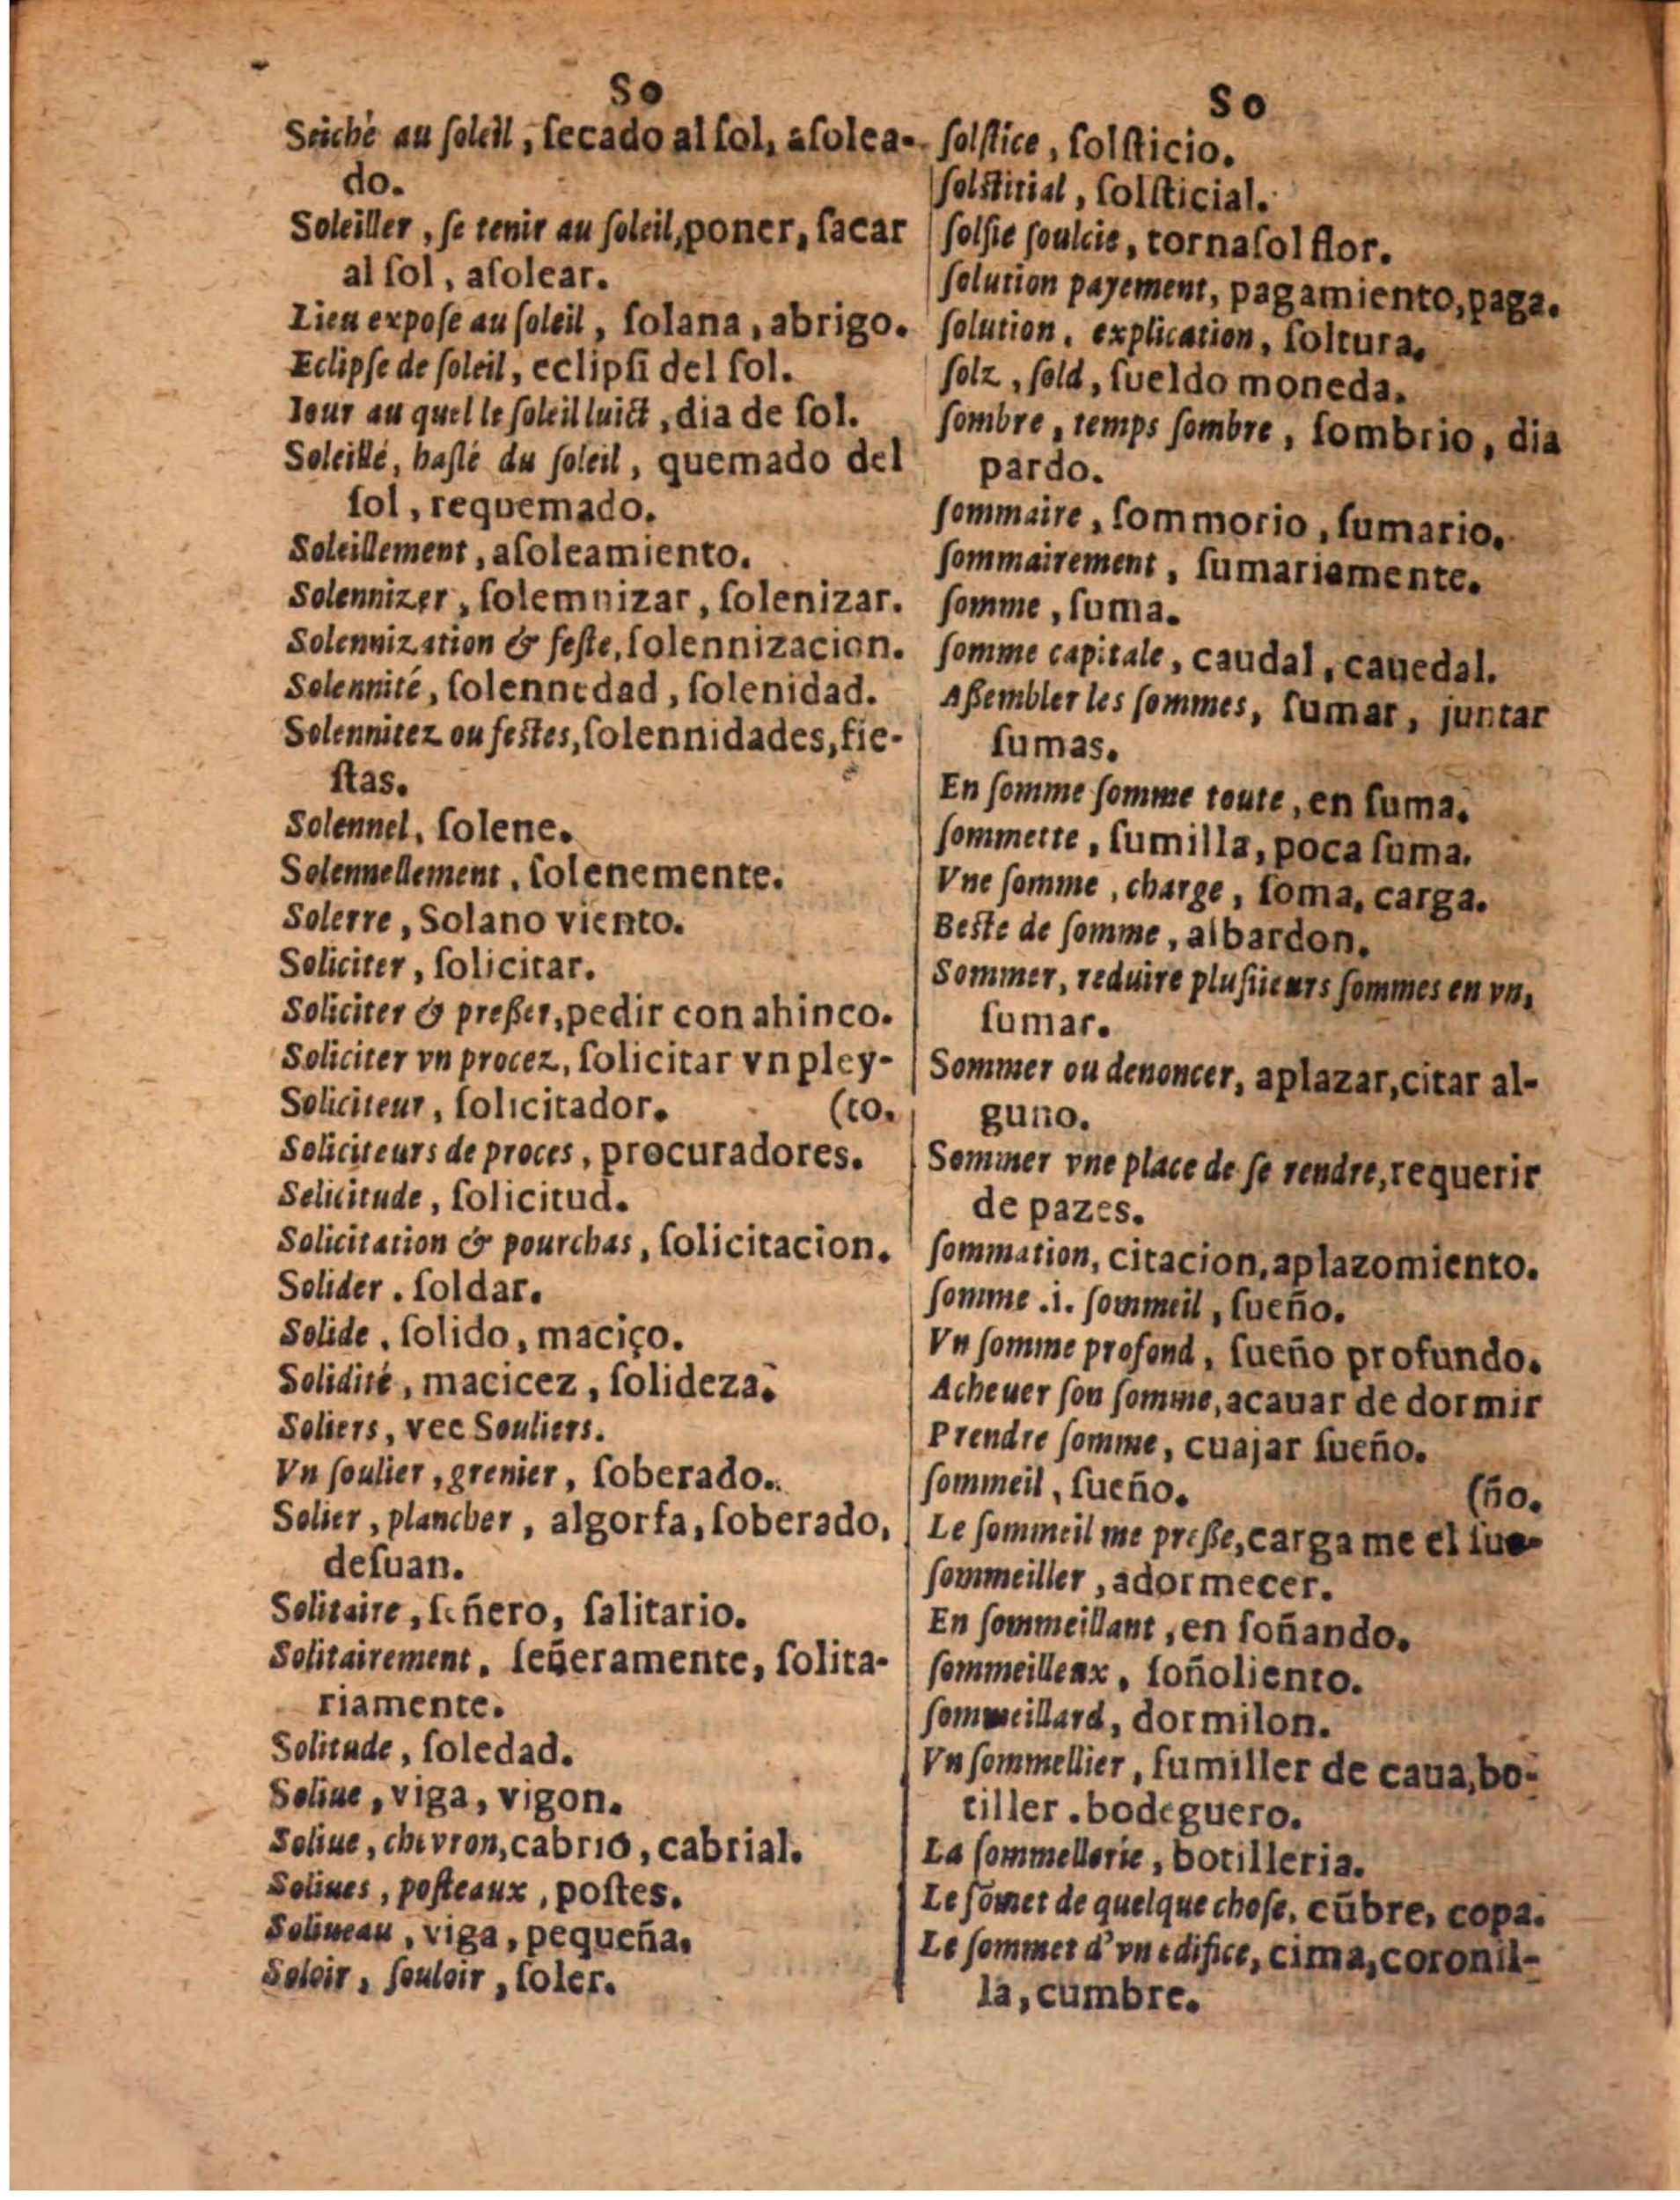 So
Seiché au ſoleil, ſecado al ſol, aſolea-
do.
Soleiller, ſe tenir au ſoleil, poner, ſacar
al ſol, aſolear.
Lieu expoſe au ſoleil, ſolana, abrigo.
Eclipſe de ſoleil, eclipſi del ſol.
Iour au quel le ſoleil luict, dia de ſol.
Soleillé, haſlé du ſoleil, quemado del
ſol, requemado.
Soleillement, aſoleamiento.
Solennizer, ſolemnizar, ſolenizar.
Solennization & feſte, ſolennizacion.
Solennité, ſolennedad, ſolenidad.
Solennitez ou feſtes, ſolennidades, fie-
ſtas.
Solennel, ſolene.
Solennellement, ſolenemente.
Solerre, Solano viento.
Soliciter, ſolicitar.
Soliciter & preßer, pedir con ahinco.
Soliciter vn procez, ſolicitar vn pley-
Soliciteur, ſolicitador. (to.
Soliciteurs de proces, procuradores.
Solicitude, ſolicitud.
Solicitation & pourchas, ſolicitacion.
Solider. ſoldar.
Solide, ſolido, maciço.
Solidité, macicez, ſolideza.
Soliers, vee Souliers.
Vn ſoulier, grenier, ſoberado.
Solier, plancher, algorfa, ſoberado,
deſuan.
Solitaire, ſeñero, ſalitario.
Solitairement, ſeñeramente, ſolita-
riamente.
Solitude, ſoledad.
Soliue, viga, vigon.
Soliue, chevron, cabrio, cabrial.
Soliues, poſteaux, poſtes.
Soliueau, viga, pequeña.
Soloir, ſouloir, ſoler.
So
ſolſtice, ſolſticio.
ſolſtitial, ſolſticial.
ſolſie ſoulcie, tornaſol flor.
ſolution payement, pagamiento, paga.
ſolution, explication, ſoltura.
ſolz, ſold, ſueldo moneda.
ſombre, temps ſombre, ſombrio, dia
pardo.
ſommaire, ſommorio, ſumario.
ſommairement, ſumariamente.
ſomme, ſuma.
ſomme capitale, caudal, cauedal.
Aßembler les ſommes, ſumar, juntar
ſumas.
En ſomme ſomme toute, en ſuma.
ſommette, ſumilla, poca ſuma.
Vne ſomme, charge, ſoma, carga.
Beſte de ſomme, albardon.
Sommer, reduire pluſiieurs ſommes en vn,
ſumar.
Sommer ou denoncer, aplazar, citar al-
guno.
Sommer vne place de ſe rendre, requerir
de pazes.
ſommation, citacion, aplazomiento.
ſomme .i. ſommeil, ſueño.
Vn ſomme profond, ſueño profundo.
Acheuer ſon ſomme, acauar de dormir
Prendre ſomme, cuajar ſueño.
ſommeil, ſueño. (ño.
Le ſommeil me preße, carga me el ſue-
ſommeiller, adormecer.
En ſommeillant, en ſoñando.
ſommeilleux, ſoñoliento.
ſommeillard, dormilon.
Vn ſommellier, ſumiller de caua, bo-
tiller. bodeguero.
La ſommellerie, botilleria.
Le ſõmet de quelque choſe, cũbre, copa.
Le ſommet d'vn edifice, cima, coronil-
la, cumbre.